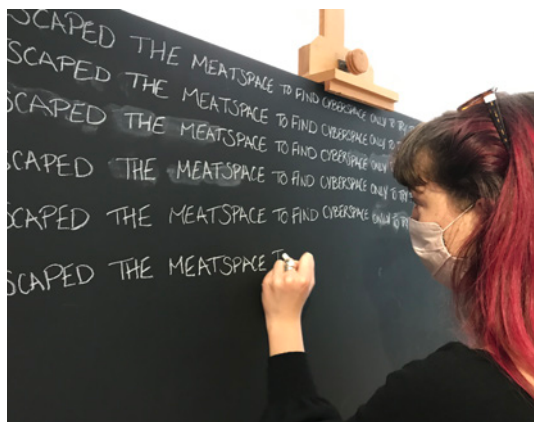 SCAPED THE MEATSPACE TO FIND CYBERSPACE ONLY TO TRY TO
SCAPED THE MEATSPACE TO FIND CYBERSPACE ONLY TO
SCAPED THE MEATSPACE TO FIND CYBERSPACE ONLY TO
SCAPED THE MEATSPACE TO FIND CYBERSPACE ONLY TO TRY
SCAPED THE MEATSPACE TO FIND CYBERSPACE ONLY TO TRY
SCAPED THE MEATSPACE T